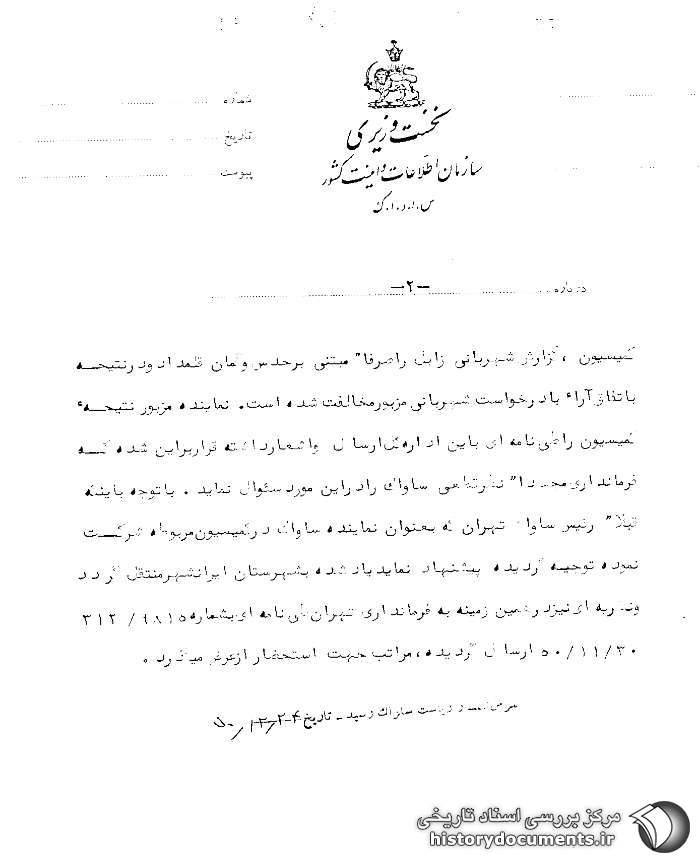 نخست وزیری
سازمان اطلاعات و امنیت کشور
س.ا.و.ا.ک
شماره
تاریخ
پیوست
درباره
-۲-
کمیسیون ، گزارش شهربانی زابل راصرفا" مبتنی برحدس وگمان قلمداد ودرنتیجه
باتفاق آراء بادرخواست شهربانی مزبورمخالفت شده است. نماینده مزبور نتیجه
کمیسیون راطی نامه ای باین اداره کل ارسال واشعارداشته قراربراین شده که
فرمانداری مجددا" نظرقطعی ساواک رادراین مورد سئوال نماید . باتوجه باینکه
قبلا" رئیس ساواک تهران که بعنوان نماینده ساواک درکمیسیون مربوطه شرکت
نموده توجیه گردیده پیشنهاد نماید یادشده بشهرستان ایرانشهرمنتقل گردد
ونظریه ای نیزدرهمین زمینه به فرمانداری تهران طی نامه ای بشماره ۳۱۲/۹۸۱۵
۵۰/۱۱/۳۰ ارسال گردیده ، مراتب جهت استحضار ازعرض میگذرد .
ریاست ساواک رسید - تاریخ ۵۰/۱۲/۲۴
مرکز بررسی اسناد تاریخی
historydocuments.ir